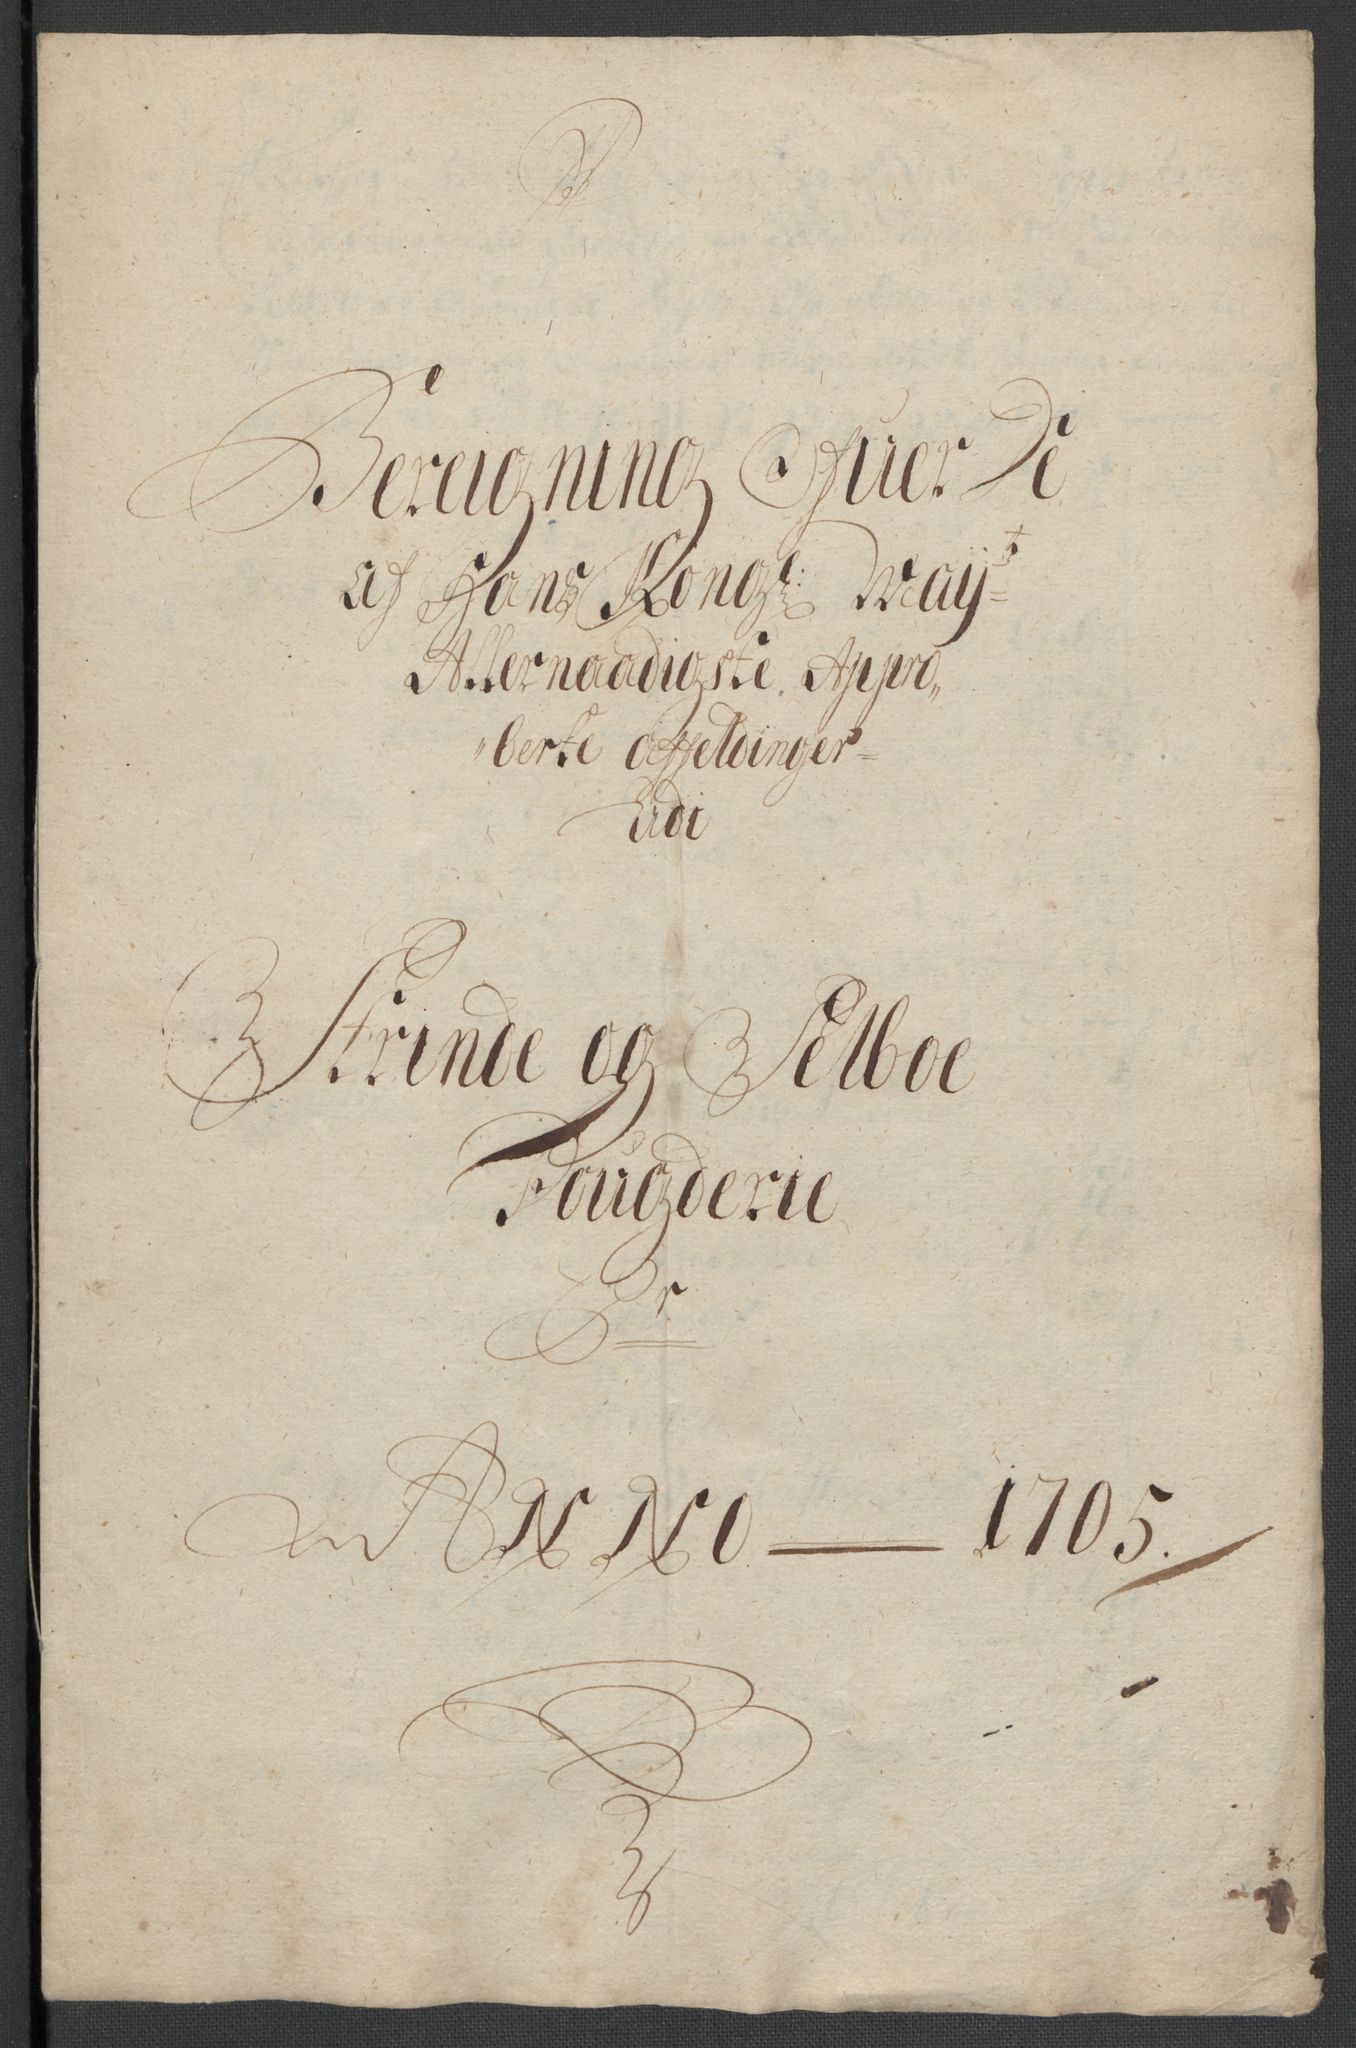 Bereigning Ofuer De
af Hans Kongl: Mayts
Allernaadigste Appro„
„berte affeldinger
Udi
Strinde og Selboe
Fougderie
Pr
ANNO — 1705.